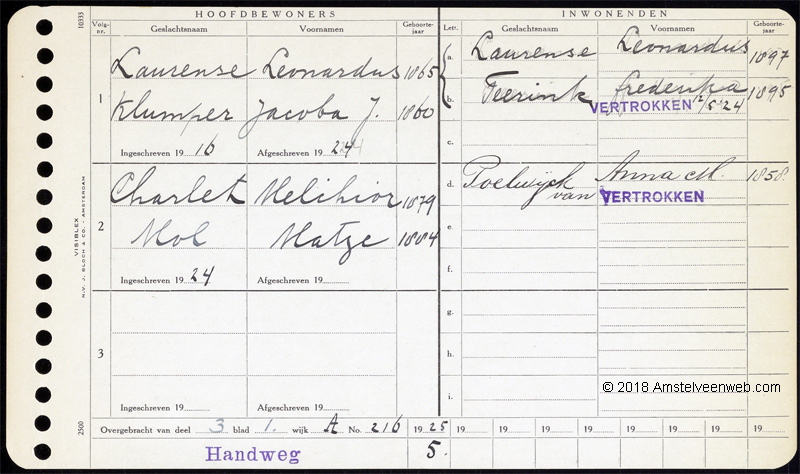 HOOFDBEWONERS
INWONENDEN
Volg-nr. Geslachtsnaam Voornamen Geboorte-jaar
Lett. Geslachtsnaam Voornamen Geboorte-jaar
1
Laurense Leonardus 1865
Klumper Jacoba J. 1860
Ingeschreven 1916 Afgeschreven 1924
a. Laurense Leonardus 1897
b. Teerink frederika 1895
VERTROKKEN 1/5 '24
c.
2
Charlet Melchior 1879
Mol Matze 1884
Ingeschreven 1924 Afgeschreven 19
d. Poelwijck van Anna M. 1858
VERTROKKEN
e.
f.
3
Ingeschreven 19 Afgeschreven 19
g.
h.
i.
Overgebracht van deel 3 blad 1. wijk A No. 216 1925 19 19 19 19 19 19 19 19
Handweg 5.
10333
VISIBLEX
N.V. J. BLOCH & CO. - AMSTERDAM
2500
© 2018 Amstelveenweb.com